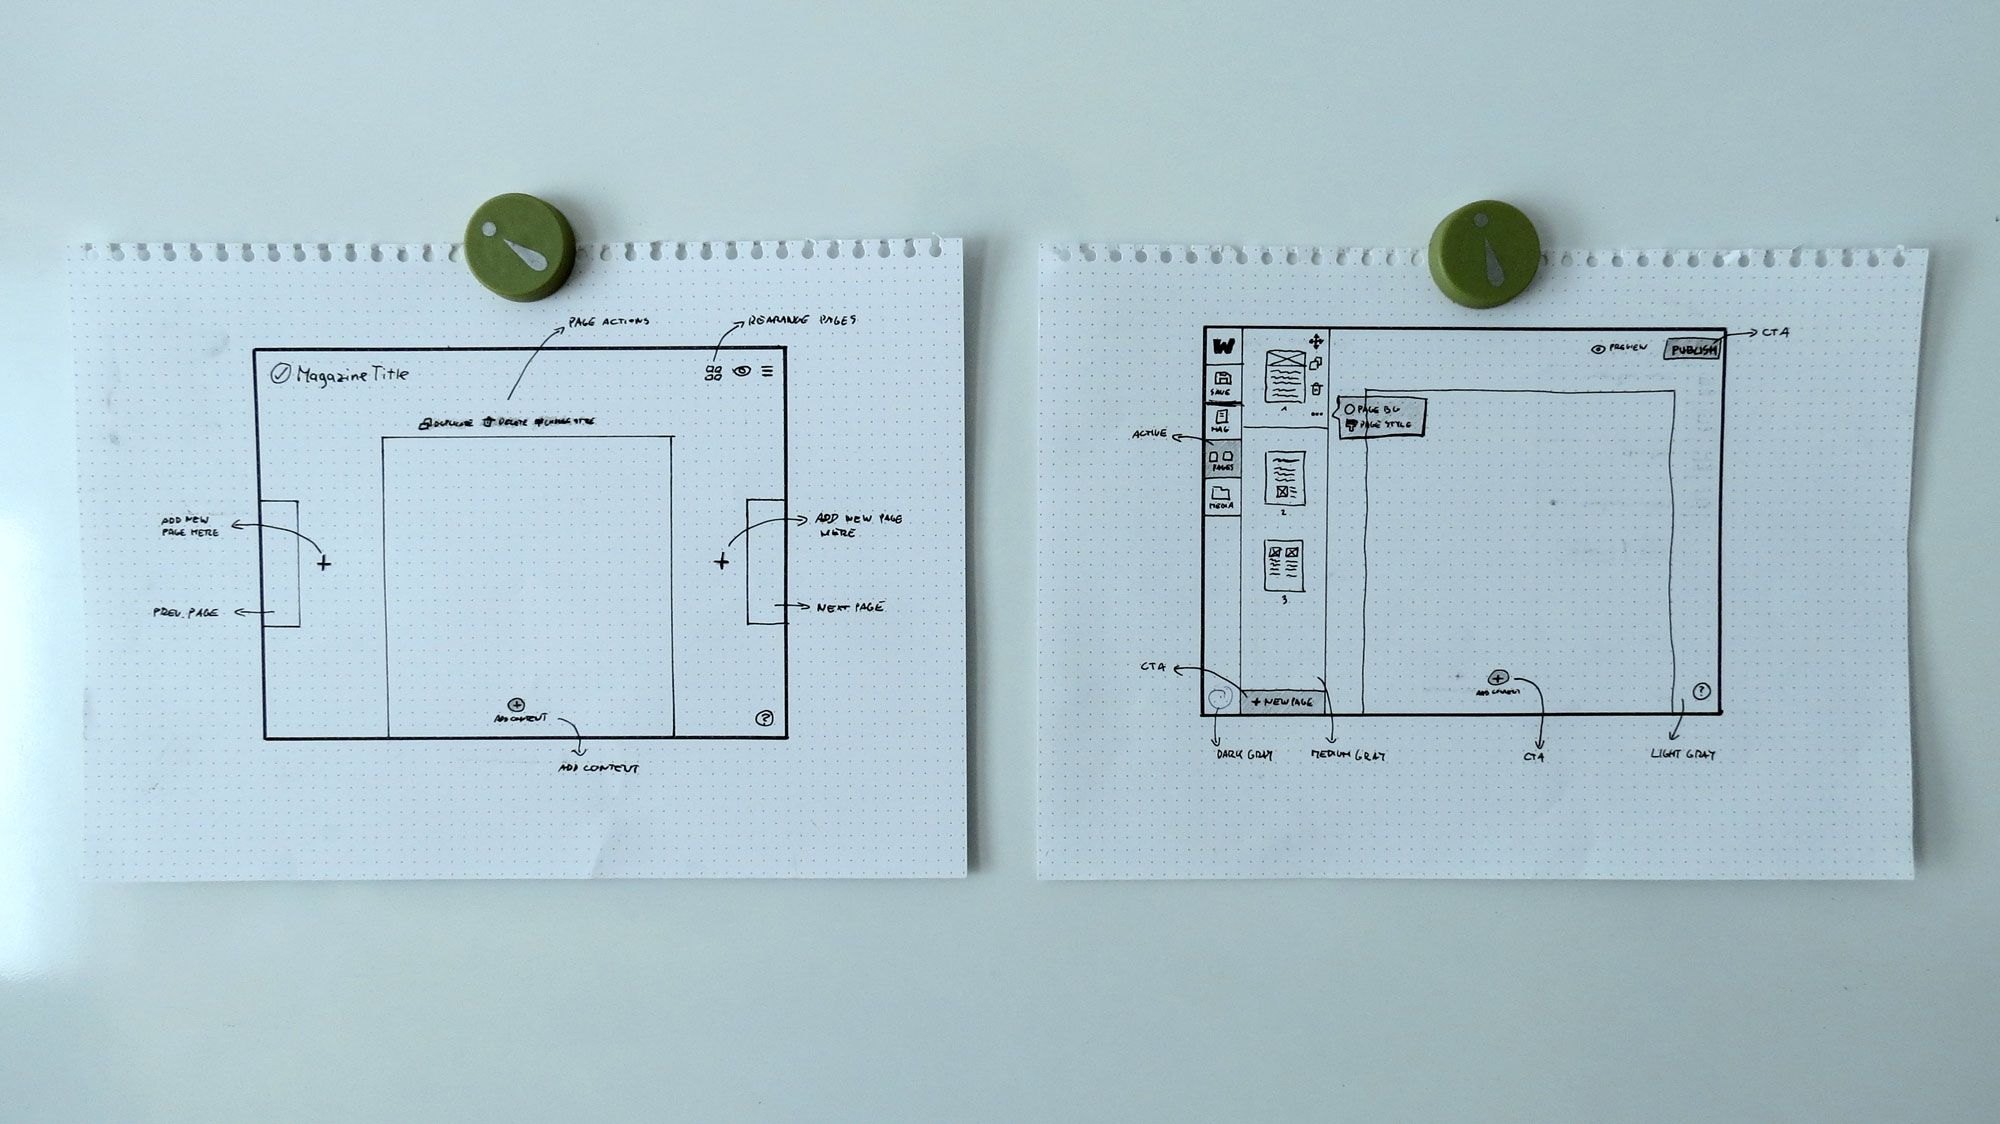 PAGE ACTIONS
REARANGE PAGES
Magazine Title
DUPLICATE DELETE CHANGE STYLE
ADD NEW
PAGE HERE
ADD NEW PAGE
HERE
PREV. PAGE
NEXT PAGE
ADD CONTENT
?
ADD CONTENT
W
SAVE
MAG
PAGES
MEDIA
ACTIVE
1
2
3
PAGE BG
PAGE STYLE
PREVIEW
PUBLISH
CTA
CTA
+ NEW PAGE
ADD CONTENT
?
DARK GRAY
MEDIUM GRAY
CTA
LIGHT GRAY